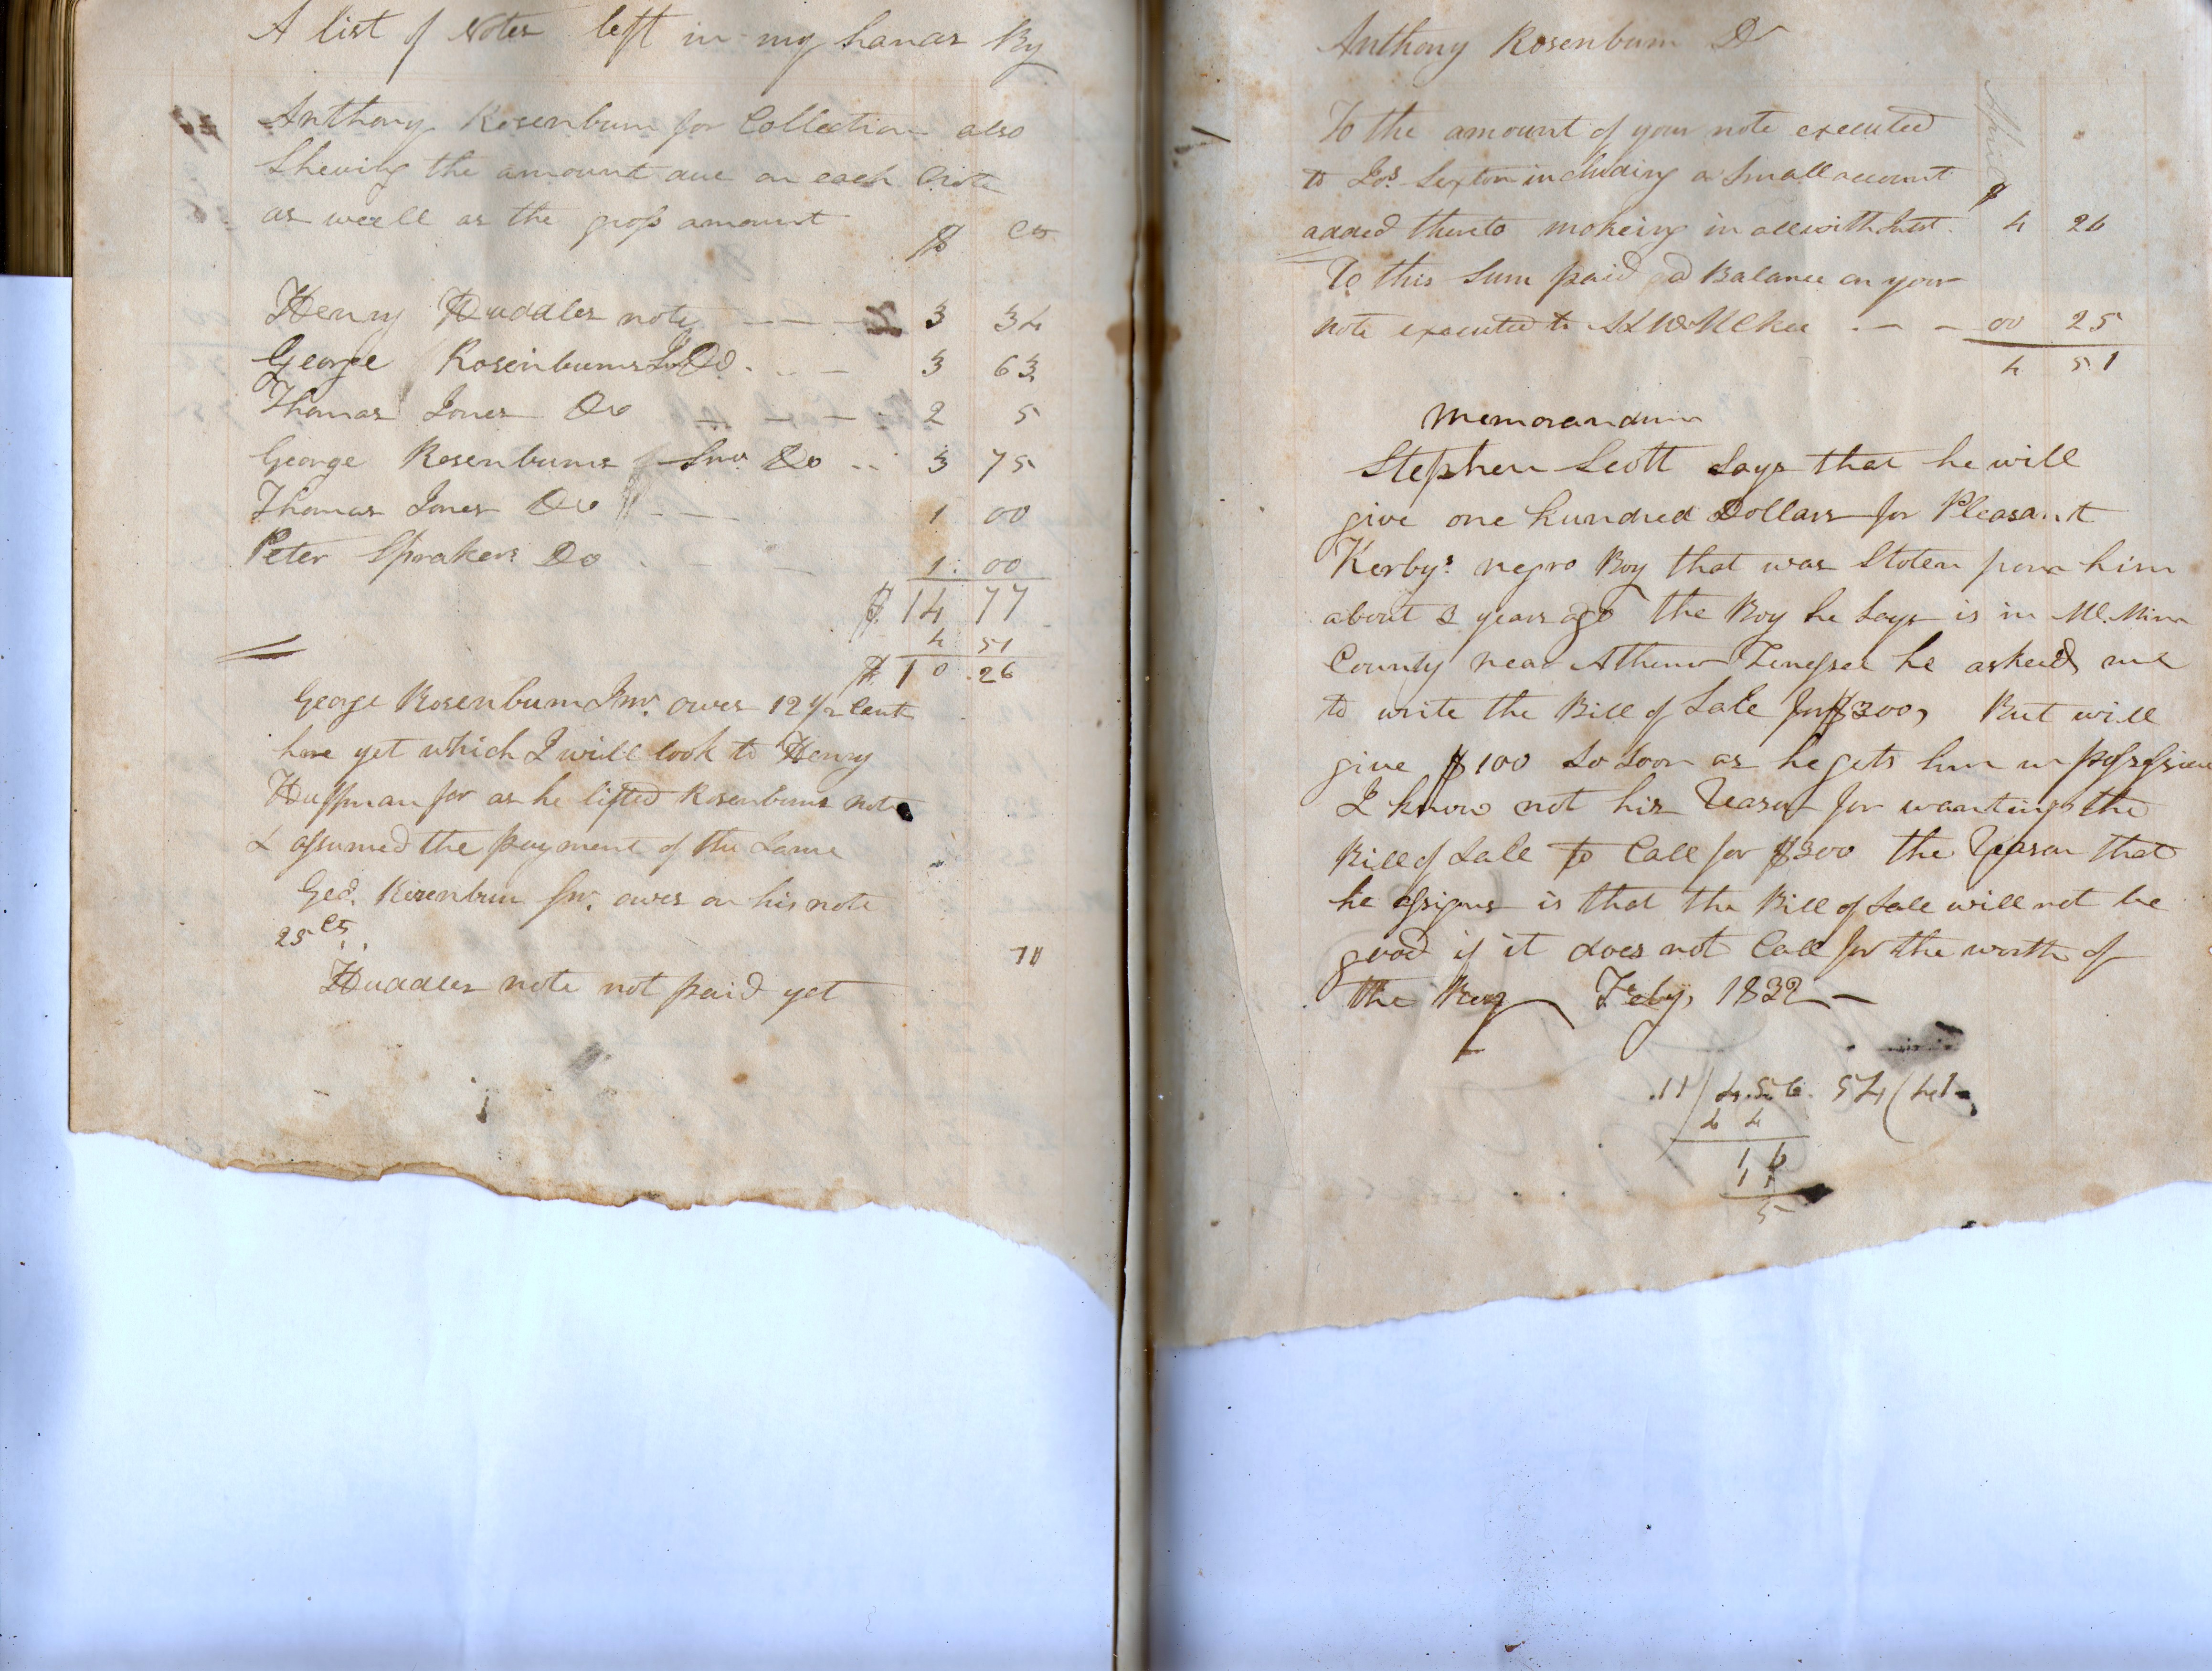 A list of Notes left in my hands By
Anthony Rosenbum for Collection also
Shewing the amount due on each Note
as weell as the gross amount $ Cts
Henry Huddles note — — 3 34
George Rosenbums Do. .. — 3 63
Thomas Jones Do — — — 2 5
George Rosenbums Snr. Do .. 3 75
Thomas Jones Do — — 1 00
Peter Sprakers Do . — — 1. 00
$ 14 77
4 51
$ 10.26
George Rosenbum Jnr. owes 12 1/2 Cents
here yet which I will look to Henry
Huffman for as he lifted Rosenbums note
& assumed the payment of the Same
Geo. Rosenbum Snr. owes on his note
25 cts.
71
Huddles note not paid yet
Anthony Rosenbum Dr
To the amount of your note executed
to Jos. Sexton including a Small account
added thereto makeing in all with Intt. $ 4 26
To this Sum paid as Balance on your
note executed to . — — 00 25
4 51
Memorandum
Stephen Scott Says that he will
give one hundred Dollars for Pleasant
Kerbys. negro Boy that was Stolen from him
about 2 years ago the Boy he Says is in Mc.Minn
County near Athens Tenessee he asked me
to write the Bill of Sale for $300, But will
give $100 So Soon as he gets him in possession
I know not his Reason for wanting the
Bill of Sale to Call for $300 the Reason that
he assigns is that the Bill of Sale will not be
good if it does not Call for the worth of
the Boy Feby, 1832 —
.11 / 4.56. 54 ( 41
4 4
1 6
1 1
5